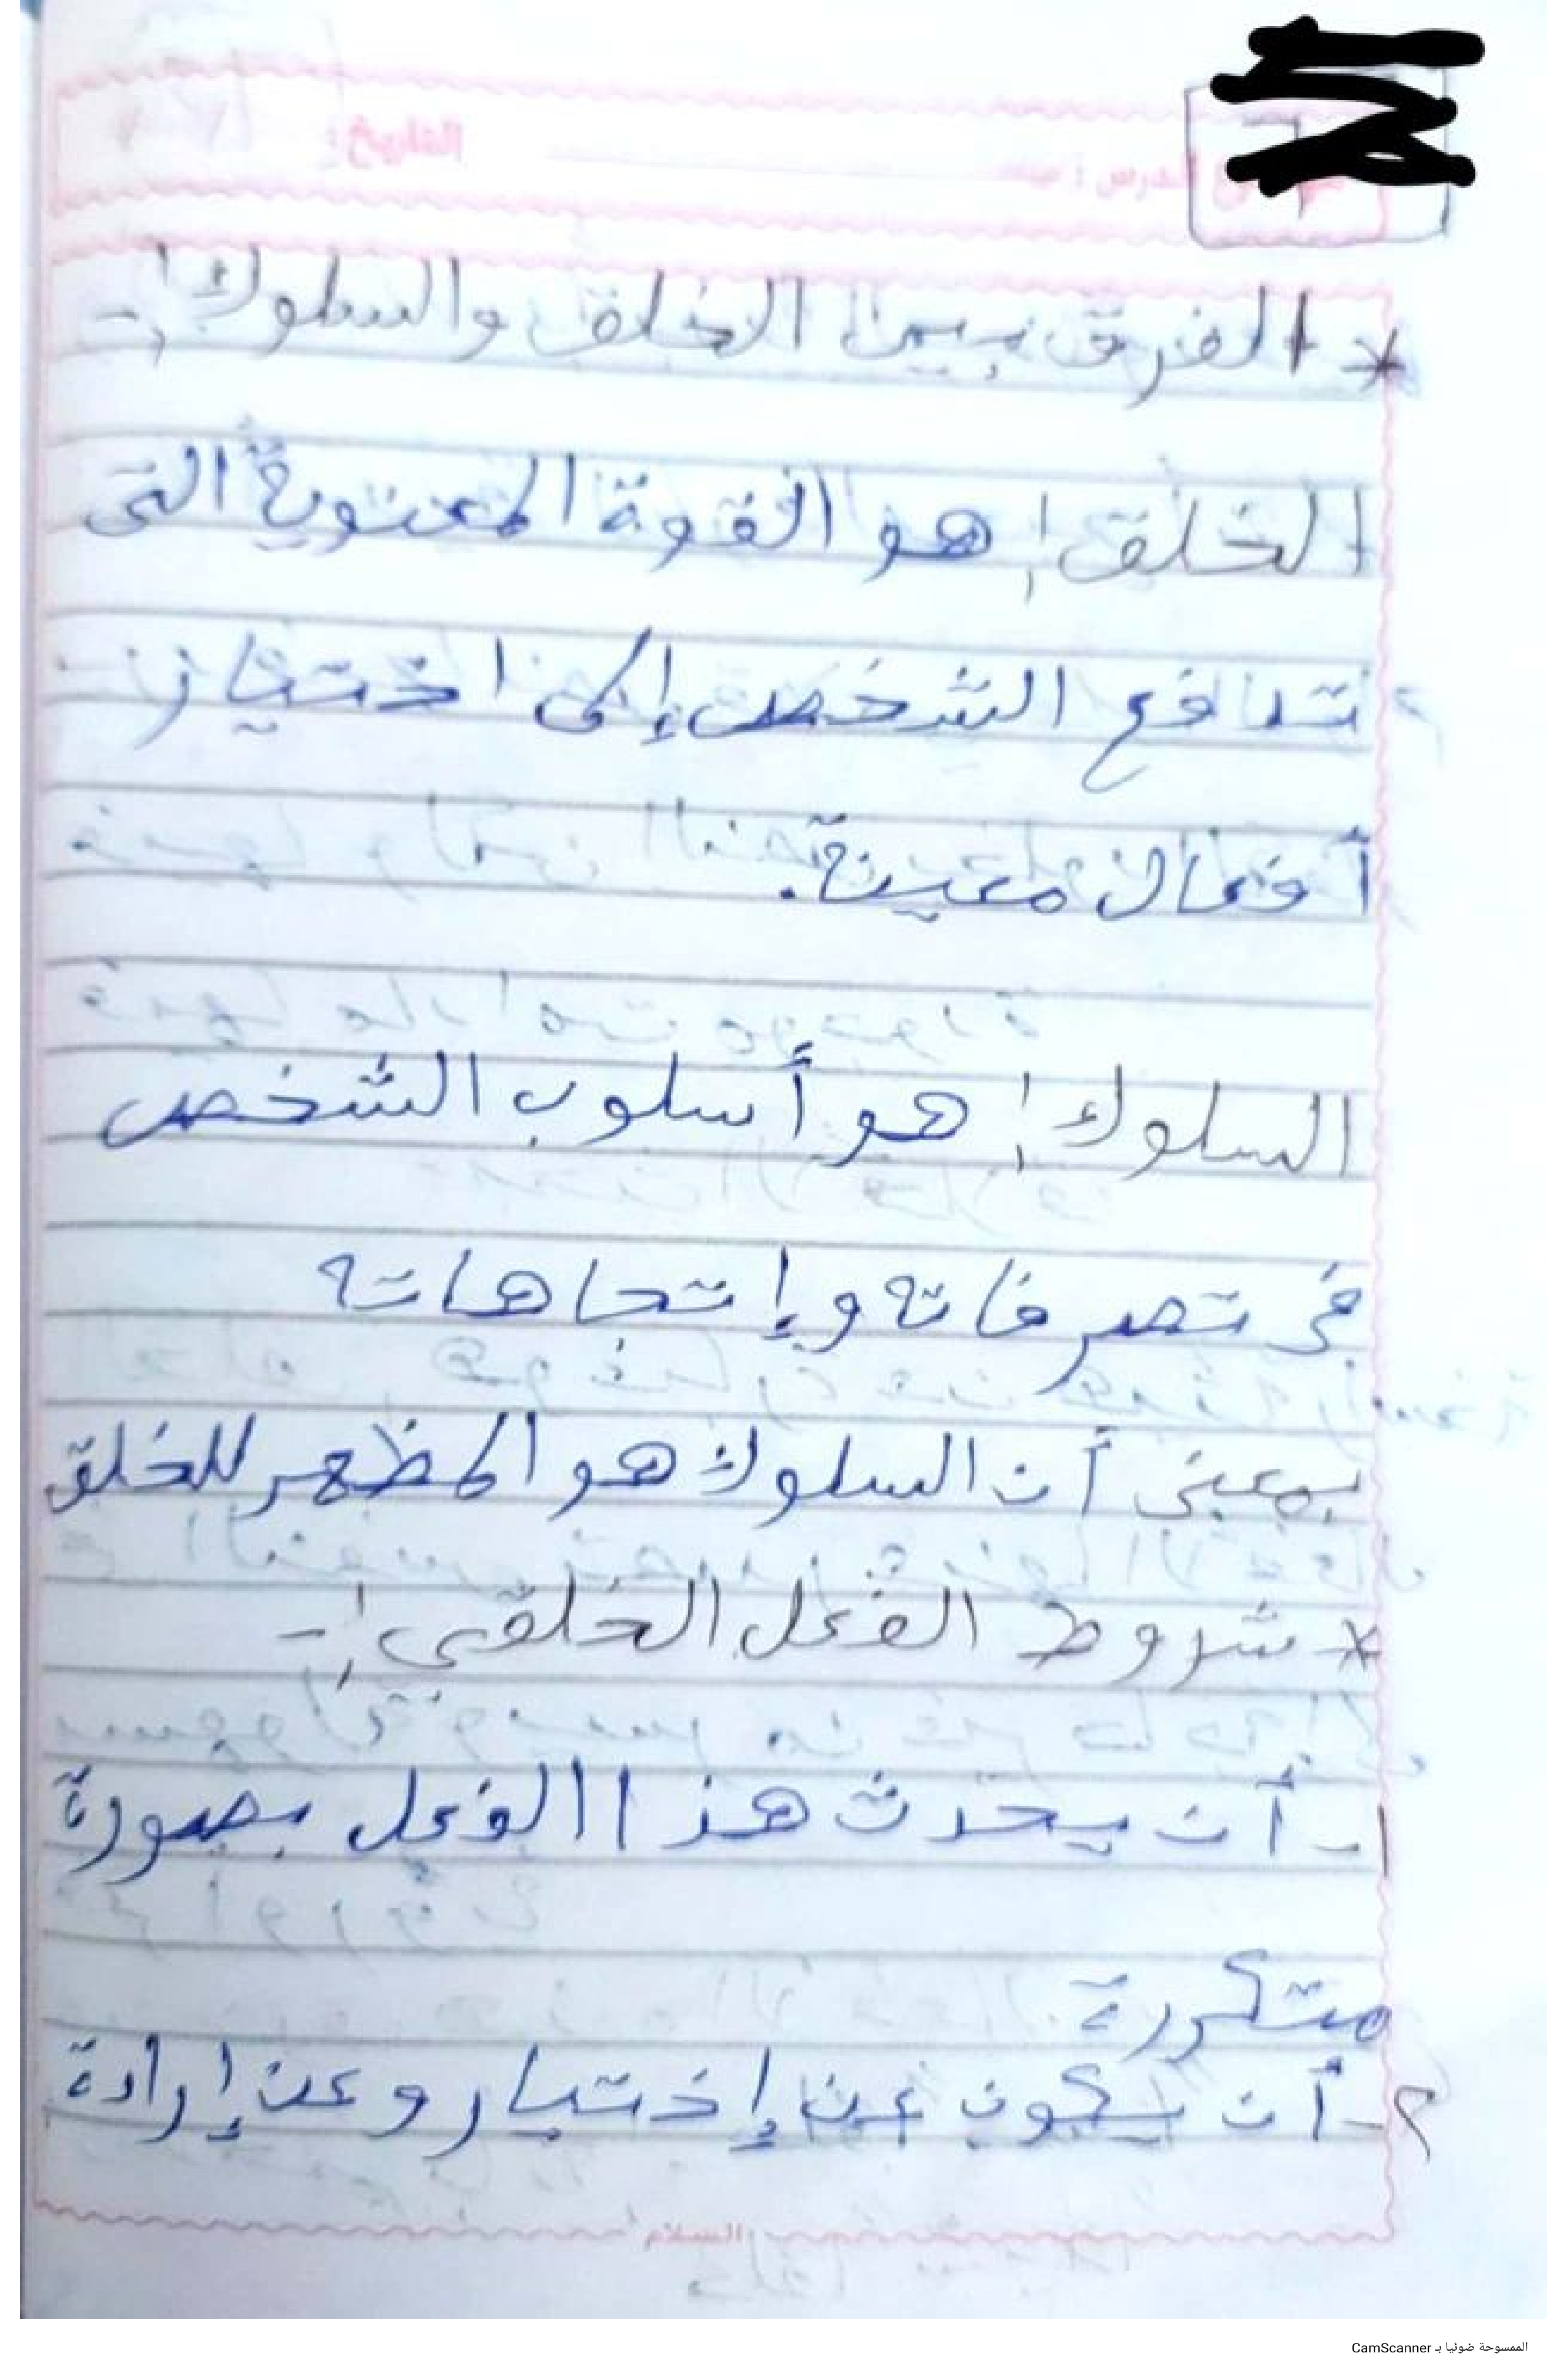 التاريخ:
الدرس:
* الفرق بين الخلق والسلوك :-
الخلق : هو القوة المعنوية التى
تدافع الشخص إلى اختيار
أفعال معينة.
السلوك : هو أسلوب الشخص
فى تصرفاته وإتجاهاته
بمعنى أن السلوك هو المظهر للخلق
* شروط الفعل الخلقي :-
١- أن يحدث هذا الفعل بصورة
متكررة
٢- أن يكون عن إختيار وعن إرادة
السلام
الممسوحة ضوئيا بـ CamScanner